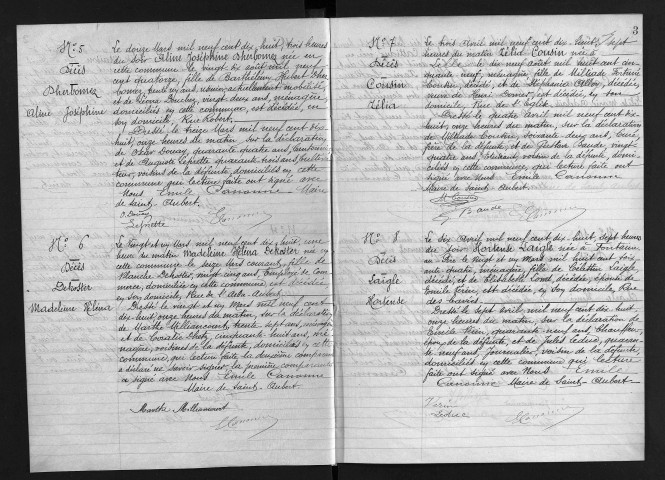 No 5
Décès
Dherbomez
Aline Joséphine
Le douze Mars mil neuf cent dix-huit, trois heures
du soir Aline Joséphine Dherbomez née en
cette commune le vingt-six août mil neuf
cent quatorze, fille de Barthélémy Hubert Dher
bomez, trente six ans, actuellement mobilisé
et de Léona vingt deux ans, ménagère,
domiciliés en cette commune, est décédée, en
son domicile, Rue
Dressé le treize Mars mil neuf cent dix-
huit, onze heures du matin, sur la déclaration
de Oscar Douay, quarante quatre ans,
et de Auguste Lefrette quarante trois ans
voisins de la défunte, domiciliés en cette
commune qui lecture faite ont signé avec
Nous Emile Canonne Maire
de Saint-Aubert.
O. Douay
Lefrette
ECanonne
No 6
Décès
Dekoster
Madeleine Héléna
Le Vingt et un Mars mil neuf cent dix-huit, une
heure du matin Madeleine Héléna Dekoster née en
cette commune le seize Mars courant, fille de
Blanche Dekoster, vingt cinq ans, Employée de Com
merce, domiciliée en cette commune est décédée
en son domicile, Rue de
Dressé le vingt et un Mars mil neuf cent
dix-huit onze heures du matin, sur la déclaration
de Marthe Milliancourt, trente sept ans, ménagère
et de cinquante huit ans, mé
nagère, voisines de la défunte, domiciliées en cette
commune, qui lecture faite la deuxième comparante
a déclaré ne savoir signer, la première comparante
a signé avec Nous Emile Canonne
Maire de Saint-Aubert
Marthe Milliancourt
ECanonne
3
No 7
Décès
Cousin
Zélia
Le trois Avril mil neuf cent dix-huit, sept
heures du matin Zélia Cousin née à
le dix août mil huit cent cin
quante neuf, ménagère, fille de
Cousin, décédé, et de Stéphanie décédée,
est décédée, en son
domicile, Rue de l'Eglise
Dressé le quatre Avril, mil neuf cent dix-
huit, onze heures du matin, sur la déclaration
de Cousin, soixante deux ans,
frère de la défunte, et de Gustave Baude, vingt-
quatre ans, Etudiant, voisin de la défunte, domi
ciliés en cette commune, qui lecture faite ont
signé avec Nous Emile Canonne
Maire de Saint-Aubert
Cousin
G. Baude
ECanonne
No 8
Décès
Laigle
Hortense
Le Six Avril mil neuf cent dix-huit, sept heures
du soir Hortense Laigle née à Fontaine
au Pire le vingt et un Mars mil huit cent soix
ante quatre, ménagère, fille de Célestin Laigle,
décédé, et de décédée, épouse de
Emile est décédée, en son domicile, Rue
des
Dressé le sept Avril, mil neuf cent dix-huit
onze heures du matin, sur la déclaration de
Emile quarante neuf ans, Chauffeur,
époux de la défunte, et de Jules Leduc, quaran
te neuf ans, journalier, voisin de la défunte,
domiciliés en cette commune qui lecture
faite ont signé avec Nous Emile
Canonne Maire de Saint-Aubert
Leduc
ECanonne